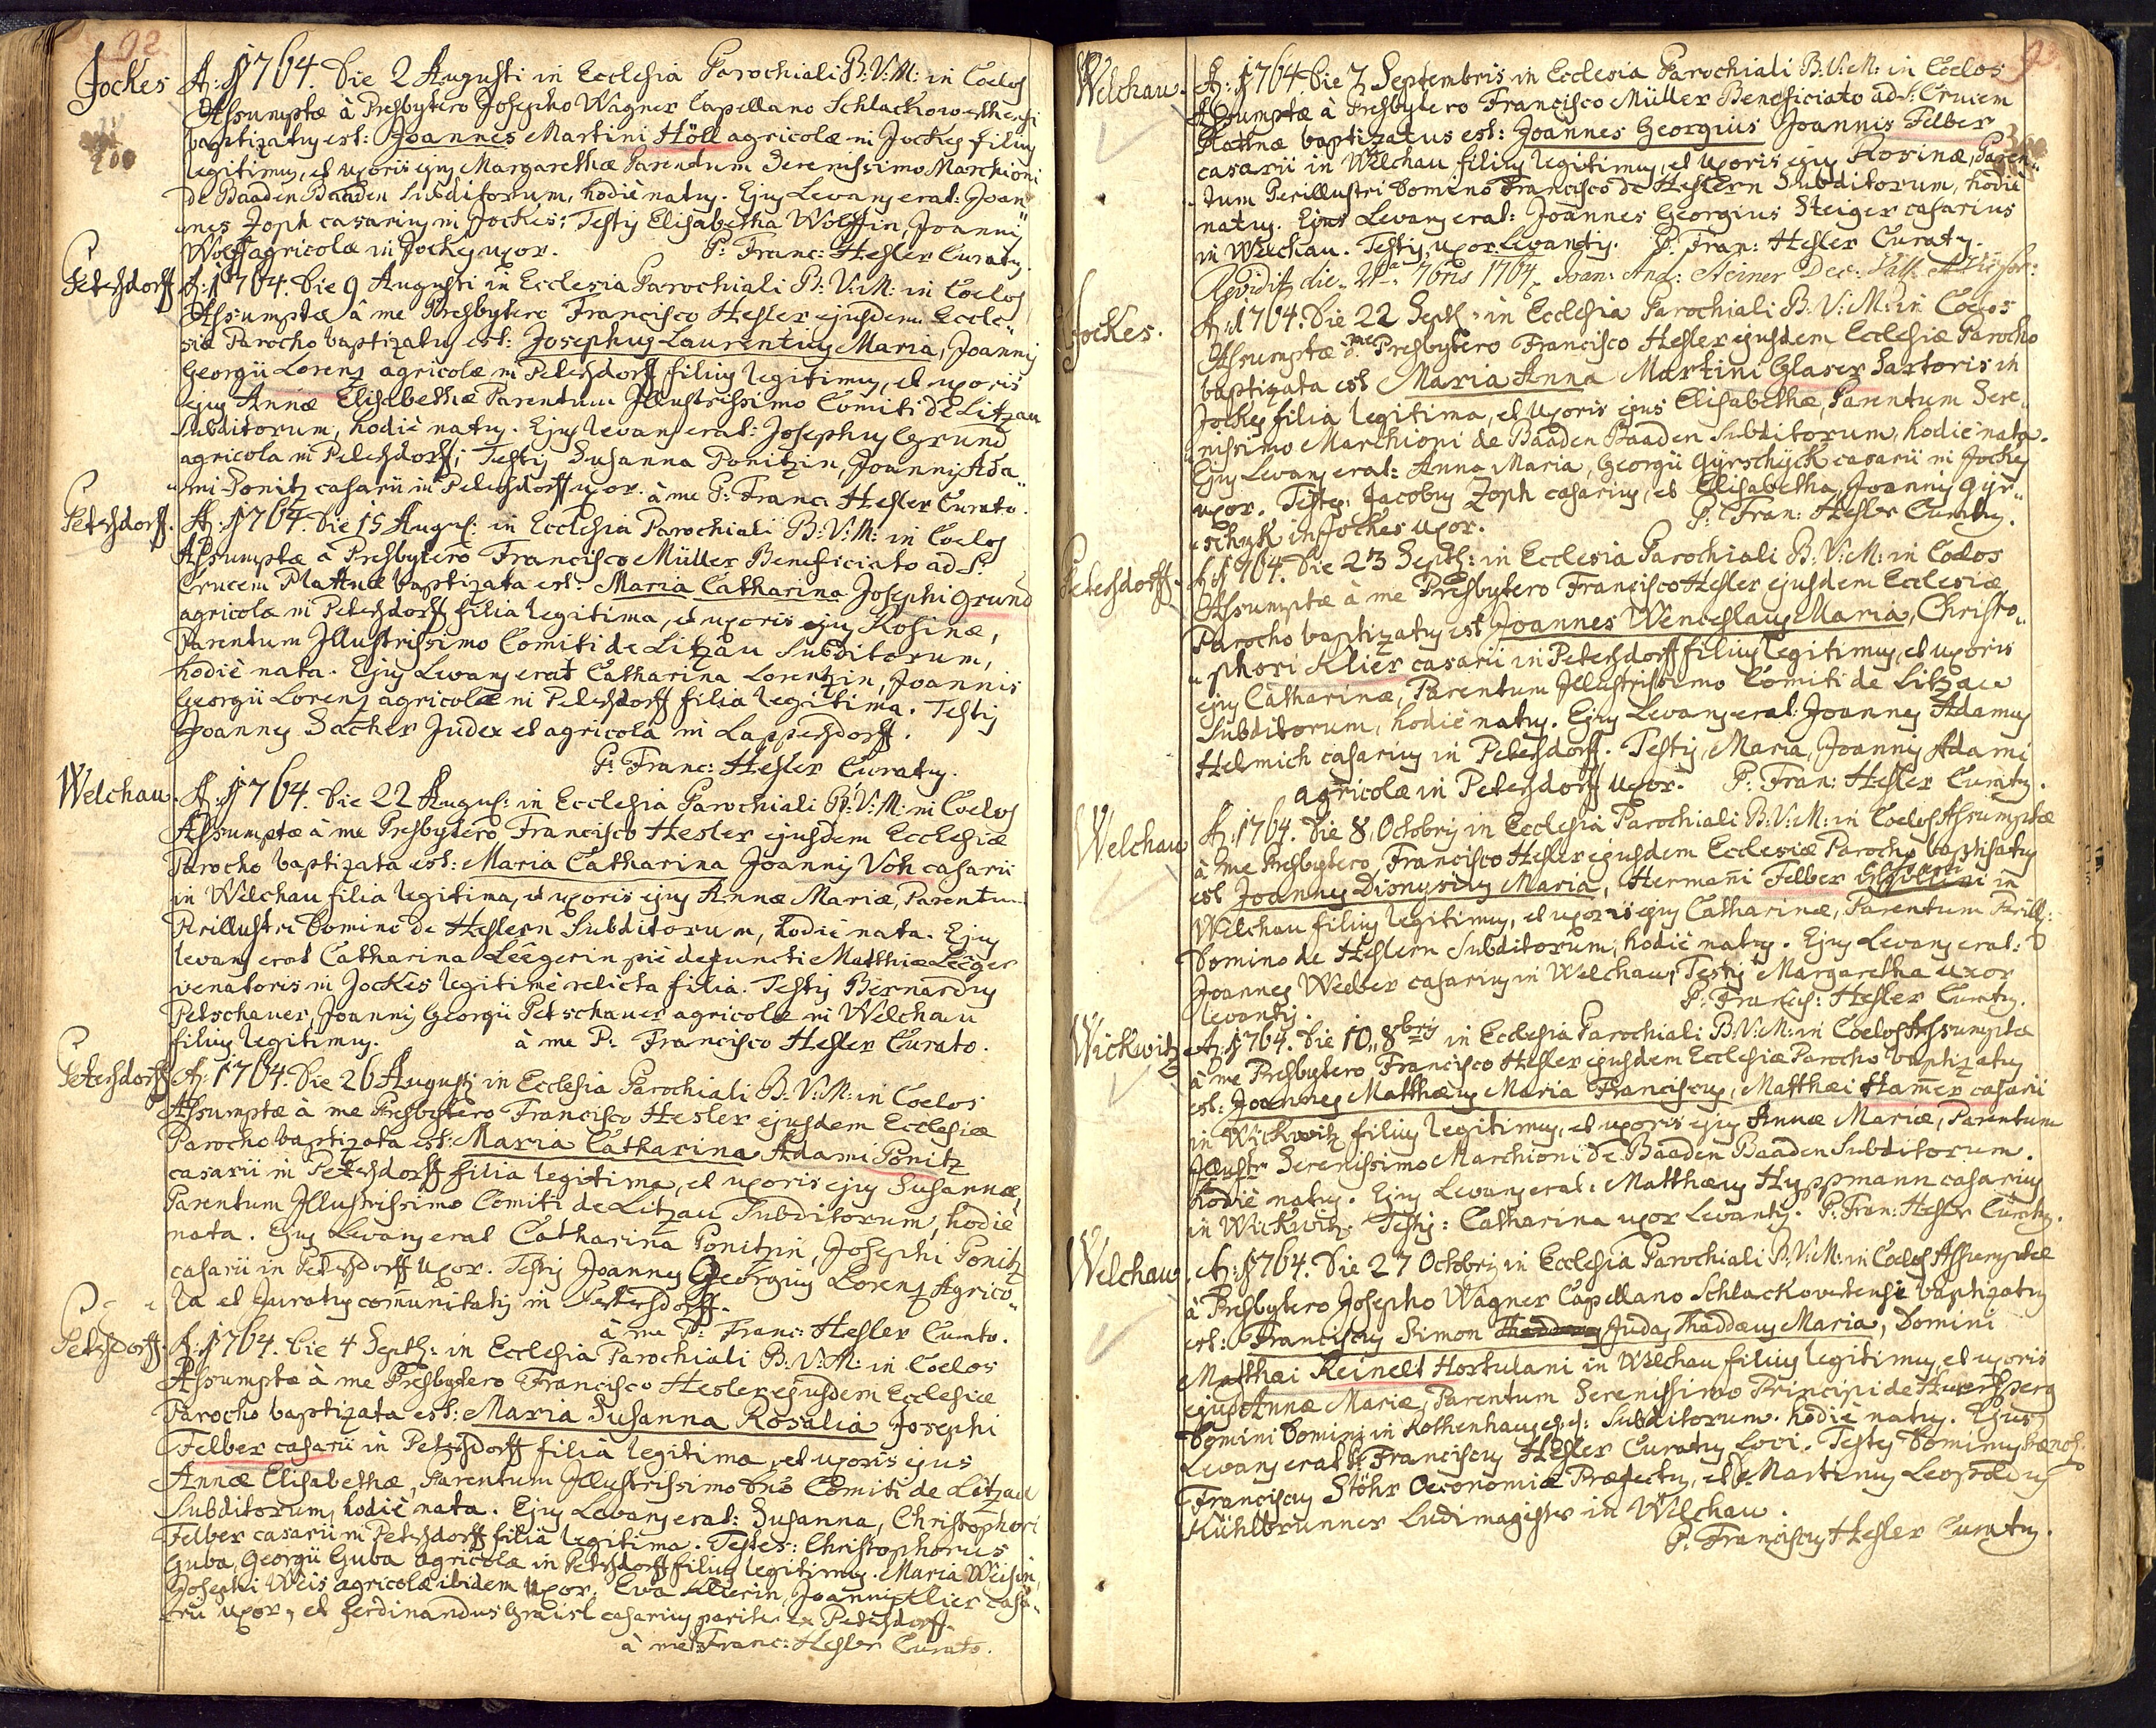 92
Jockes
A: 1764. Die 2 Augusti in Ecclesia Parochiali B: V: M: in Coelos
Assumptæ à Presbytero Josepho Wagner Capellano Schlackowerthensi
baptizatus est: Joannes Martini Höll agricolæ in Jockes filius
legitimus, et uxoris ejus Margarethæ Parentum Serenissimo Marchioni
de Baaden Baaden Subditorum, hodiè natus. Ejus Levans erat: Joan„
„nes Zoph casarius in Jockes: Testis Elisabetha Wolffin, Joannis
Wolff agricolæ in Jockes uxor. P: Franc: Hesler Curatus.
Petersdorff
A: 1764. Die 9 Augusti in Ecclesia Parochiali B: V: M: in Coelos
Assumptæ â me Presbytero Francisco Hesler ejusdem Eccle„
siæ Parocho baptizatus est: Josephus Laurentius Maria, Joannis
Georgii Lorenz agricolæ in Petersdorff filius legitimus, et uxoris
ejus Annæ Elisabethæ Parentum Illustrissimo Comiti de Litzau
Subditorum, hodiè natus. Ejus levans erat: Josephus Grund
agricola in Petersdorff; Testis Susanna Ponitzin, Joannis Ada„
„mi Ponitz casarii in Petersdorff uxor. à me P: Franc: Hesler Curato.
Petersdorff.
A: 1764. Die 15 August: in Ecclesia Parochiali B: V: M: in Coelos
Assumptæ à Presbytero Francisco Müller Beneficiato ad S:
Crucem Plattnæ baptizata est: Maria Catharina Josephi Grund
agricolæ in Petersdorff filia legitima, et uxoris ejus Rosinæ,
Parentum Illustrissimo Comiti de Litzau Subditorum,
hodiè nata. Ejus Levans erat Catharina Lorentzin, Joannis
Georgii Lorenz agricolæ in Petersdorff filia legitima. Testis
Joannes Sacher Judex et agricola in Lappersdorff.
P: Franc: Hesler Curatus.
Welchau.
A: 1764. Die 22 August: in Ecclesia Parochiali B: V: M: in Coelos
Assumptæ à me Presbytero Francisco Hesler ejusdem Ecclesiæ
Parocho baptizata est: Maria Catharina Joannis Voh casarii
in Welchau filia legitima, et uxoris ejus Annæ Mariæ, Parentum
Perillustri Domino de Heslern Subditorum, hodiè nata. Ejus
levans erat Catharina Leêgerin piè defuncti Matthiæ Leêger
venatoris in Jockes legitimè relicta filia. Testis Bernardus
Petschauer, Joannis Georgii Petschauer agricolæ in Welchau
filius legitimus. à me P: Francisco Hesler Curato.
Petersdorff
A: 1764. Die 26 Augusti in Ecclesia Parochiali B: V: M: in Coelos
Assumptæ à me Presbytero Francisco Hesler ejusdem Ecclesiæ
Parocho baptizata est: Maria Catharina Adami Ponitz
casarii in Petersdorff filia legitima, et uxoris ejus Susannæ,
Parentum Illustrissimo Comiti de Litzau Subditorum, hodiè
nata. Ejus Levans erat Catharina Ponitzin, Josephi Ponitz
casarii in Petersdorff uxor. Testis Joannes Georgius Lorenz Agrico„
la et Juratus com̄unitatis in Petersdorff.
à me P: Franc: Hesler Curato.
Petersdorff.
A: 1764. Die 4 Septb: in Ecclesia Parochiali B: V: M: in Coelos
Assumptæ à me Presbytero Francisco Hesler ejusdem Ecclesiæ
Parocho baptizata est: Maria Susanna Rosalia Josephi
Felber casarii in Petersdorff filia legitima, et uxoris ejus
Annæ Elisabethæ, Parentum Illustrissimo Dn̄o Comiti de Litzau
Subditorum, hodiè nata. Ejus Levans erat: Susanna, Christophori
Felber casarii in Petersdorff filia legitima. Testes: Christophorus
Guba, Georgii Guba agricolæ in Petersdorff filius legitimus. Maria Weisin,
Josephi Weis agricolæ ibidem uxor. Eva Klierin, Joannis Klier casa„
rii uxor, et Ferdinandus Graisl casarius pariter ex Petersdorff.
à me P: Franc: Hesler Curato.
93
Welchau.
A: 1764. Die 7 Septembris in Ecclesia Parochiali B: V: M: in Coelos
Assumptæ à Presbytero Francisco Müller Beneficiato ad S: Crucem
Plattnæ baptizatus est: Joannes Georgius Joannis Felber
casarii in Welchau filius legitimus, et uxoris ejus Rosinæ, Paren„
„tum Perillustri Domino Francisco de Heslern Subditorum, hodiè
natus. Ejus Levans erat: Joannes Georgius Steiger casarius
in Welchau. Testis, uxor Levantis. P: Fran: Hesler Curatus.
Revidit die 21 7bris 1764. Joan: And: Steiner Dec:
Jockes.
A: 1764. Die 22 Septb: in Ecclesia Parochiali B: V: M: in Coelos
Assumptæ à me Presbytero Francisco Hesler ejusdem Ecclesiæ Parocho
baptizata est Maria Anna Martini Glaser Sartoris in
Jockes filia legitima, et Uxoris ejus Elisabethæ, Parentum Sere„
„nissimo Marchioni de Baaden Baaden Subditorum, hodiè nata.
Ejus Levans erat: Anna Maria, Georgii Gyrschyck casarii in Jockes
uxor. Testes, Jacobus Zoph casarius, et Elisabetha, Joannis Gyr„
„schyk in Jockes uxor. P: Fran: Hesler Curatus.
Petersdorff.
A: 1764. Die 23 Septb: in Ecclesia Parochiali B: V: M: in Coelos
Assumptæ à me Presbytero Francisco Hesler ejusdem Ecclesiæ
Parocho baptizatus est Joannes Wenceslaus Maria, Christo„
„phori Klier casarii in Petersdorff filius legitimus, et uxoris
ejus Catharinæ, Parentum Illustrissimo Comiti de Litzau
Subditorum, hodiè natus. Ejus Levans erat: Joannes Adamus
Helmich casarius in Petersdorff. Testis, Maria, Joannis Adami
agricolæ in Petersdorff uxor. P: Fran: Hesler Curatus.
Welchau
A: 1764. Die 8 Octobris in Ecclesia Parochiali B: V: M: in Coelos Assumptæ
à me Presbytero Francisco Hesler ejusdem Ecclesiæ Parocho baptisatus
est Joannes Dionysius Maria, Hermani Felber in
Welchau filius legitimus, et uxoris ejus Catharinæ, Parentum Perill:
Domino de Heslern Subditorum, hodiè natus. Ejus Levans erat:
Joannes Weeber casarius in Welchau, Testis Margaretha uxor
Levantis. P: Francis: Hesler Curatus.
Wickwitz
A: 1764. Die 10 8bris in Ecclesia Parochiali B: V: M: in Coelos Assumptæ
à me Presbytero Francisco Hesler ejusdem Ecclesiæ Parocho baptizatus
est: Joannes Matthæus Maria Franciscus, Matthæi Ham̄er casarii
in Wickwitz filius legitimus, et uxoris ejus Annæ Mariæ, Parentum
Illustr Serenissimo Marchioni de Baaden Baaden Subditorum.
hodiè natus. Ejus Levans erat: Matthæus Huppmann casarius
in Wickwitz. Testis: Catharina uxor Levantis. P: Fran: Hesler Curatus.
Welchau
A: 1764. Die 27 Octobris in Ecclesia Parochiali B: V: M: in Coelos Assumptæ
à Presbytero Josepho Wagner Capellano Schlackowertensi baptizatus
est: Franciscus Simon Judas Thaddæus Maria, Domini
Matthæi Reinelt Hortulani in Welchau filius legitimus, et uxoris
ejus Annæ Mariæ, Parentum Serenissimo Principi de Auersperg
Domini Dominis in Rothenhaus Subditorum. hodiè natus. Ejus
Levans erat P: Franciscus Hesler Curatus Loci. Testes Dominus
Franciscus Stöhr Oeconomiæ Præfectus, et Martinus Leopoldus
Kühlbrunner Ludimagister in Welchau.
P: Franciscus Hesler Curatus.